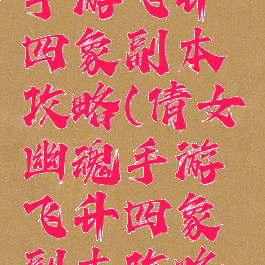 手游飞升
四象副本
攻略(倩女
幽魂手游
飞升四象
副本攻略